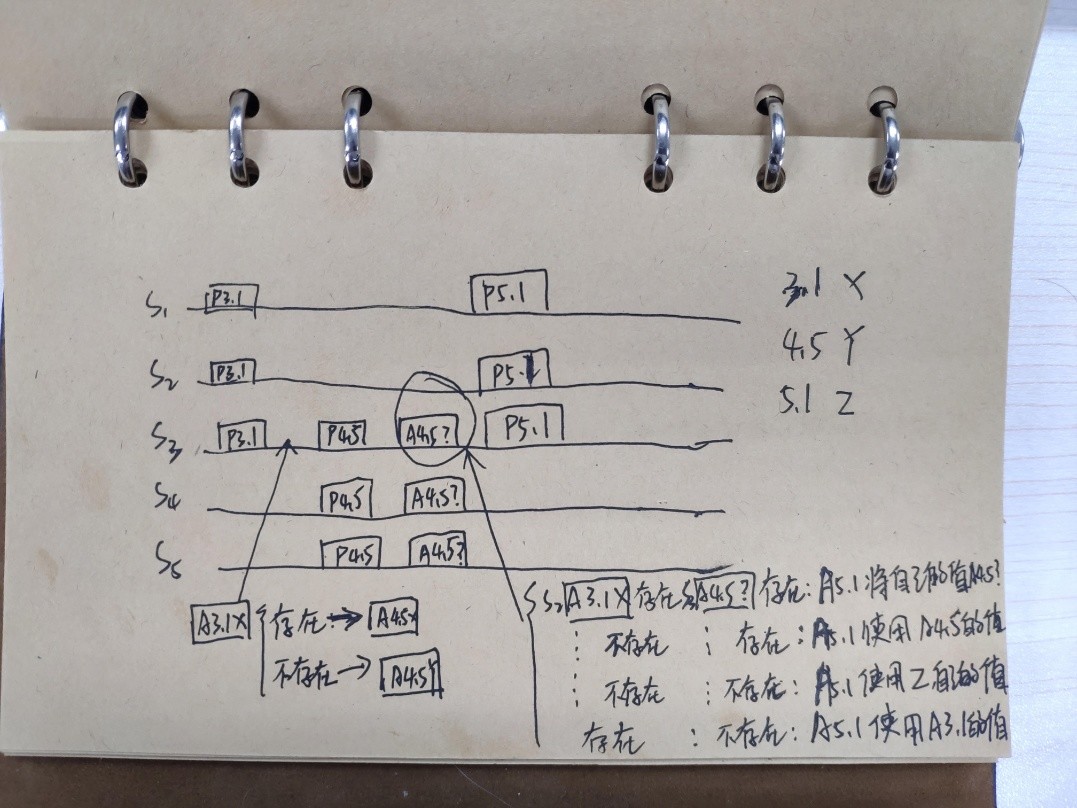 S1 P3.1 P5.1
S2 P3.1 P5.1
S3 P3.1 P4.5 A4.5? P5.1
S4 P4.5 A4.5?
S5 P4.5 A4.5?
3.1 X
4.5 Y
5.1 Z
A3.1X
存在 → A4.5X
不存在 → A4.5Y
S2 A3.1X 存在 S3 A4.5? 存在: A5.1将自己的值A4.5?
⋮ 不存在 ⋮ 存在: A5.1使用A4.5的值
⋮ 不存在 ⋮ 不存在: A5.1使用Z自己的值
存在 : 不存在: A5.1使用A3.1的值